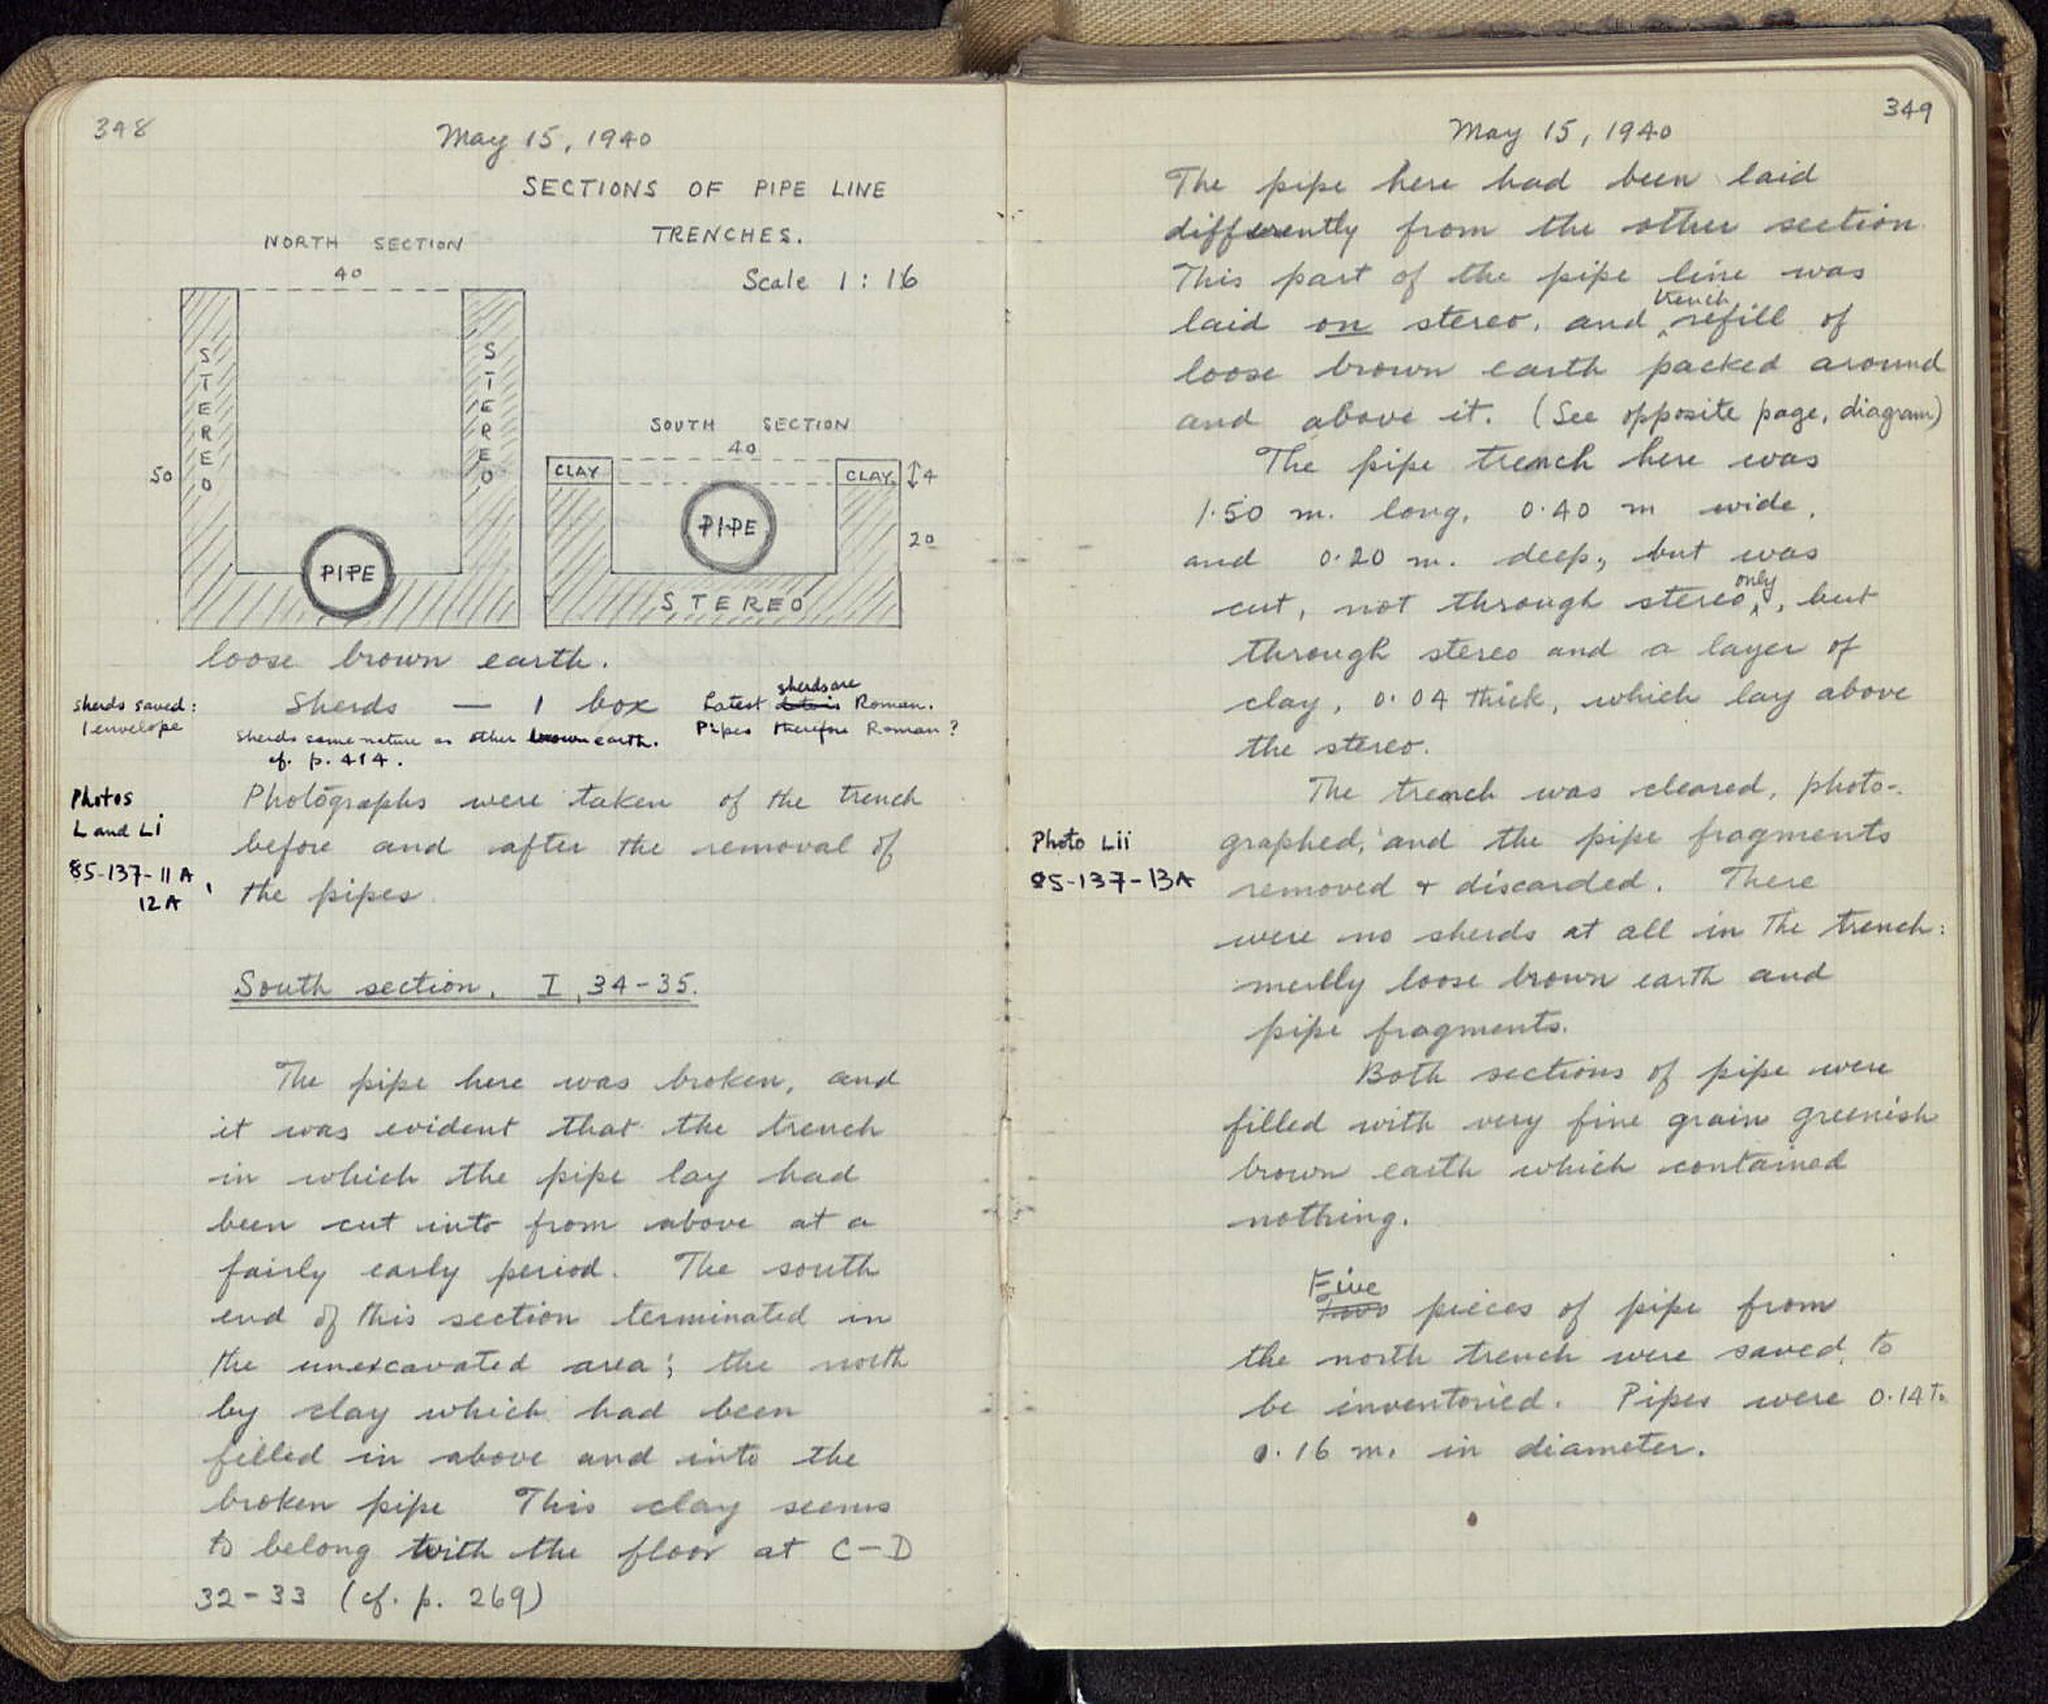 348
May 15, 1940
SECTIONS OF PIPE LINE
TRENCHES.
Scale 1 : 16
NORTH SECTION
40
STEREO
STEREO
50
PIPE
SOUTH SECTION
40
CLAY
CLAY
4
PIPE
20
STEREO
loose brown earth.
sherds saved:
1 envelope
Sherds — 1 box
sherds same nature as other brown earth.
cf. p. 414.
sherds are
Latest Roman.
Pipes therefore Roman?
Photos
L and Li
85-137-11A,
12A
Photographs were taken of the trench
before and after the removal of
the pipes.
South section, I, 34-35.
The pipe here was broken, and
it was evident that the trench
in which the pipe lay had
been cut into from above at a
fairly early period. The south
end of this section terminated in
the unexcavated area; the north
by clay which had been
filled in above and into the
broken pipe This clay seems
to belong with the floor at C-D
32-33 (cf. p. 269)
349
May 15, 1940
The pipe here had been laid
differently from the other section
This part of the pipe line was
laid on stereo, and trench refill of
loose brown earth packed around
and above it. (See opposite page, diagram)
The pipe trench here was
1.50 m. long, 0.40 m wide,
and 0.20 m. deep, but was
cut, not through stereo only, but
through stereo and a layer of
clay, 0.04 thick, which lay above
the stereo.
The trench was cleared, photo-
graphed, and the pipe fragments
removed + discarded. There
were no sherds at all in the trench:
merlly loose brown earth and
pipe fragments.
Photo Lii
85-137-13A
Both sections of pipe were
filled with very fine grain greenish
brown earth which contained
nothing.
Five
Two pieces of pipe from
the north trench were saved, to
be inventoried. Pipes were 0.14 to
0.16 m. in diameter.